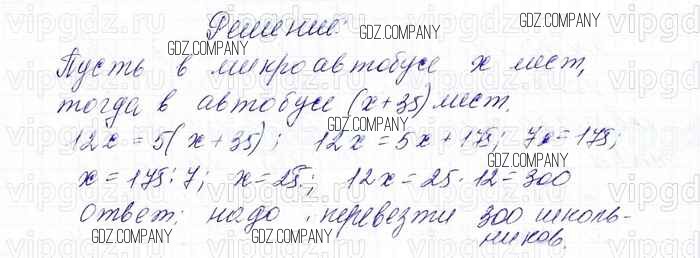 Решение:
Пусть в микроавтобусе x мест,
тогда в автобусе (x+35) мест.
12x = 5(x+35); 12x = 5x+175; 7x = 175;
x = 175:7; x = 25; 12x = 25·12 = 300
Ответ: надо перевезти 300 школь-
ников.
GDZ.COMPANY
GDZ.COMPANY
GDZ.COMPANY
GDZ.COMPANY
GDZ.COMPANY
GDZ.COMPANY
GDZ.COMPANY
GDZ.COMPANY
GDZ.COMPANY
vipgdz.ru